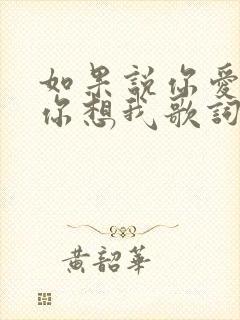 如果說你愛
你想我歌詞
黃韶華